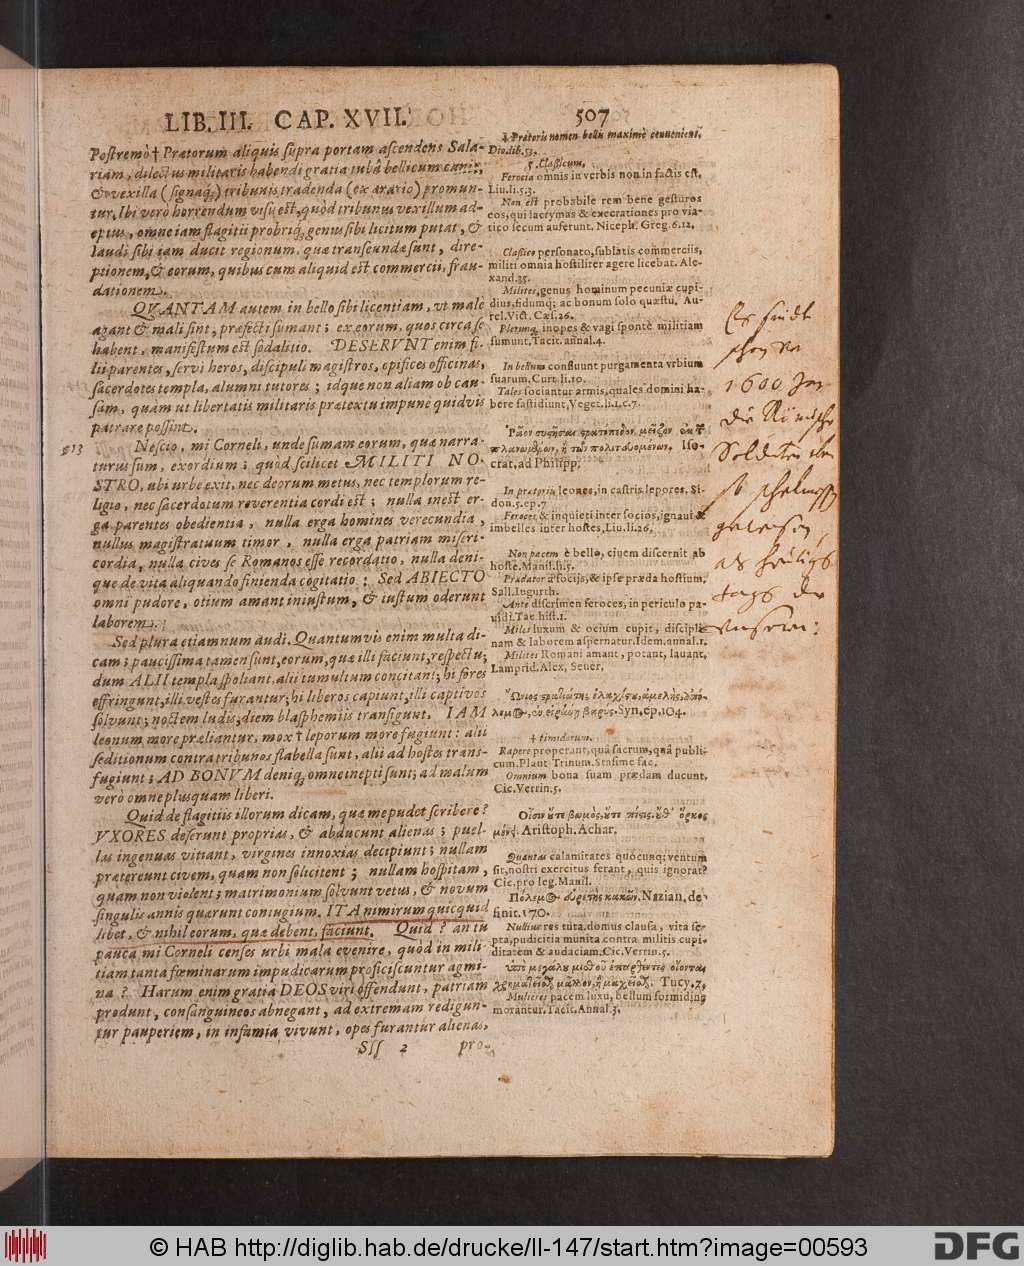 LIB. III. CAP. XVII. 507
Postremò † Prætorum aliquis supra portam ascendens Sala-
riam, dilectus militaris habendi gratia iubâ bellicum canit;
& vexilla (signaq́;) tribunis tradenda (ex ærario) promun-
tur. Ibi verò horrendum visu est, quòd tribunus vexillum ad-
eptus, omne iam flagitii probriq́; genus sibi licitum putat, &
laudi sibi iam ducit regionum, quæ transeundæ sunt, dire-
ptionem, & eorum, quibus cum aliquid est commercii, frau-
dationem.
QVANTAM autem in bello sibi licentiam, vt malè
agant & mali sint, præfecti sumant; ex eorum, quos circa se
habent, manifestum est sodalitio. DESERVNT enim fi-
lii parentes, servi heros, discipuli magistros, opifices officinas,
sacerdotes templa, alumni tutores; idque non aliam ob cau-
sam, quam ut libertatis militaris prætextu impune quidvis
patrare possint.
Nescio, mi Corneli, unde sumam eorum, quæ narra-
turus sum, exordium; quòd scilicet MILITI NO-
STRO, ubi urbe exit, nec deorum metus, nec templorum re-
ligio, nec sacerdotum reverentia cordi est; nulla inest er-
ga parentes obedientia, nulla erga homines verecundia,
nullus magistratuum timor, nulla erga patriam miseri-
cordia, nulla cives se Romanos esse recordatio, nulla deni-
que de vita aliquando finienda cogitatio: Sed ABIECTO
omni pudore, otium amant iniustum, & iustum oderunt
laborem.
Sed plura etiamnum audi. Quantumvis enim multa di-
cam; paucissima tamen sunt, eorum, quæ illi faciunt, respectu;
dum ALII templa spoliant, alii tumultum concitant; hi fores
effringunt, illi vestes furantur; hi liberos capiunt, illi captivos
solvunt; noctem ludis, diem blasphemiis transigunt. IAM
leonum more præliantur, mox † leporum more fugiunt: alii
seditionum contra tribunos flabella sunt, alii ad hostes trans-
fugiunt; AD BONVM deniq́; omne inepti sunt; ad malum
verò omne plusquam liberi.
Quid de flagitiis illorum dicam, quæ me pudet scribere?
VXORES deserunt proprias, & abducunt alienas; puel-
las ingenuas vitiant, virgines innoxias decipiunt; nullam
prætereunt civem, quam non solicitent; nullam hospitam,
quam non violent; matrimonium solvunt vetus, & novum
singulis annis quærunt coniugium. ITA nimirum quicquid
libet, & nihil eorum, quæ debent, faciunt. Quid? an tu
pauca mi Corneli censes urbi mala evenire, quòd in mili-
tiam tanta fœminarum impudicarum proficiscuntur agmi-
na? Harum enim gratia DEOS viri offendunt, patriam
produnt, consanguineos abnegant, ad extremam redigun-
tur pauperiem, in infamia vivunt, opes furantur alienas,
Sss 2 pro-
‡ Prætoris nomen bellis maximè conveniens,
Dio. lib. 53.
§. Classicum.
Ferocia omnis in verbis non in factis est.
Liu. li. 5. 3.
Non est probabile rem bene gesturos
eos, qui lacrymas & execrationes pro via-
tico secum auferunt. Niceph. Greg. 6. 12.
Classico personato, sublatis commerciis,
militi omnia hostiliter agere licebat. Ale-
xand. 35.
Milites, genus hominum pecuniæ cupi-
dius, fidumq́; ac bonum solo quæstu. Au-
rel. Vict. Cæs. 26.
Plerumq́; inopes & vagi spontè militiam
sumunt. Tacit. annal. 4.
In bellum confluunt purgamenta vrbium
suarum. Curt. li. 10.
Tales sociantur armis, quales domini ha-
bere fastidiunt, Veget. li. 1. c. 7.
Iso-
crat. ad Philipp.
In prætoriis leones, in castris lepores. Si-
don. 5. ep. 7
Feroces & inquieti inter socios, ignaui &
imbelles inter hostes, Liu. li. 26.
Non pacem è bello, ciuem discernit ab
hoste. Manil. li. 5.
Prædator à sociis, & ipse præda hostium,
Sall. Iugurth.
Ante discrimen feroces, in periculo pa-
uidi. Tac. hist. 1.
Miles luxum & ocium cupit, discipli-
nam & laborem aspernatur. Idem. annal. 1.
Milites Romani amant, potant, lauant,
Lamprid. Alex. Seuer.
Syn. ep. 104.
† timidorum.
Rapere properant, quâ sacrum, quâ publi-
cum. Plaut. Trinum. Stasime fac.
Omnium bona suam prædam ducunt,
Cic. Verrin. 5.
Οἷσιν οὔτε βωμὸς, οὔτε πίστις, οὔθ' ὅρκος
μένει. Aristoph. Achar.
Quantas calamitates quocunq; ventum
sit, nostri exercitus ferant, quis ignorat?
Cic. pro leg. Manil.
Nazian. de-
finit. 170.
Nullius res tuta. domus clausa, vita se-
pta, pudicitia munita contra militis cupi-
ditatem & audaciam. Cic. Verrin. 5.
Tucy. 7.
Mulieres pacem luxu, bellum formidine
morantur. Tacit. Annal. 3.
Es sindt
schon vor
1600 Jar
die Römische
Soldaten
so schelmisch
gewesen,
als heütigs
tags die
unsern:
© HAB http://diglib.hab.de/drucke/ll-147/start.htm?image=00593
DFG